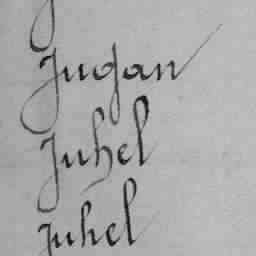 Jugan
Juhel
Juhel